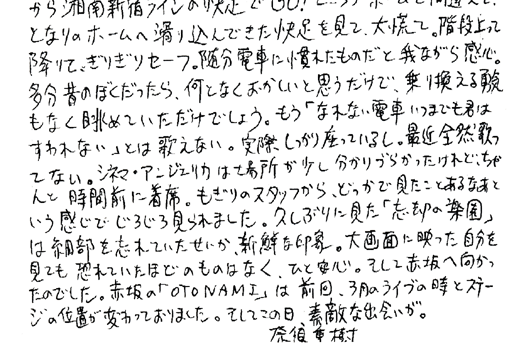 から湘南新宿ラインの快速でGO!
となりのホームへ滑り込んできた快速を見て、大慌て。階段上って
降りて、ぎりぎりセーフ。随分電車に慣れたものだと我ながら感心。
多分昔のぼくだったら、何となくおかしいと思うだけで、乗り換える勇気
もなく眺めていただけでしょう。もう「なれない電車 いつまでも君は
すわれない」とは歌えない。実際しっかり座っているし。最近全然歌っ
てない。シネマ・アンジェリカは場所が少し分かりづらかったけれど、ちゃ
んと時間前に着席。もぎりのスタッフから、どっかで見たことあるなあと
いう感じでじろじろ見られました。久しぶりに見た「忘却の楽園」
は細部を忘れていたせいか、新鮮な印象。大画面に映った自分を
見ても恐れていたほどのものはなく、ひと安心。そして赤坂へ向かっ
たのでした。赤坂の「OTONAMI」は前回、3月のライブの時とステー
ジの位置が変わっておりました。そしてこの日 素敵な出会いが。